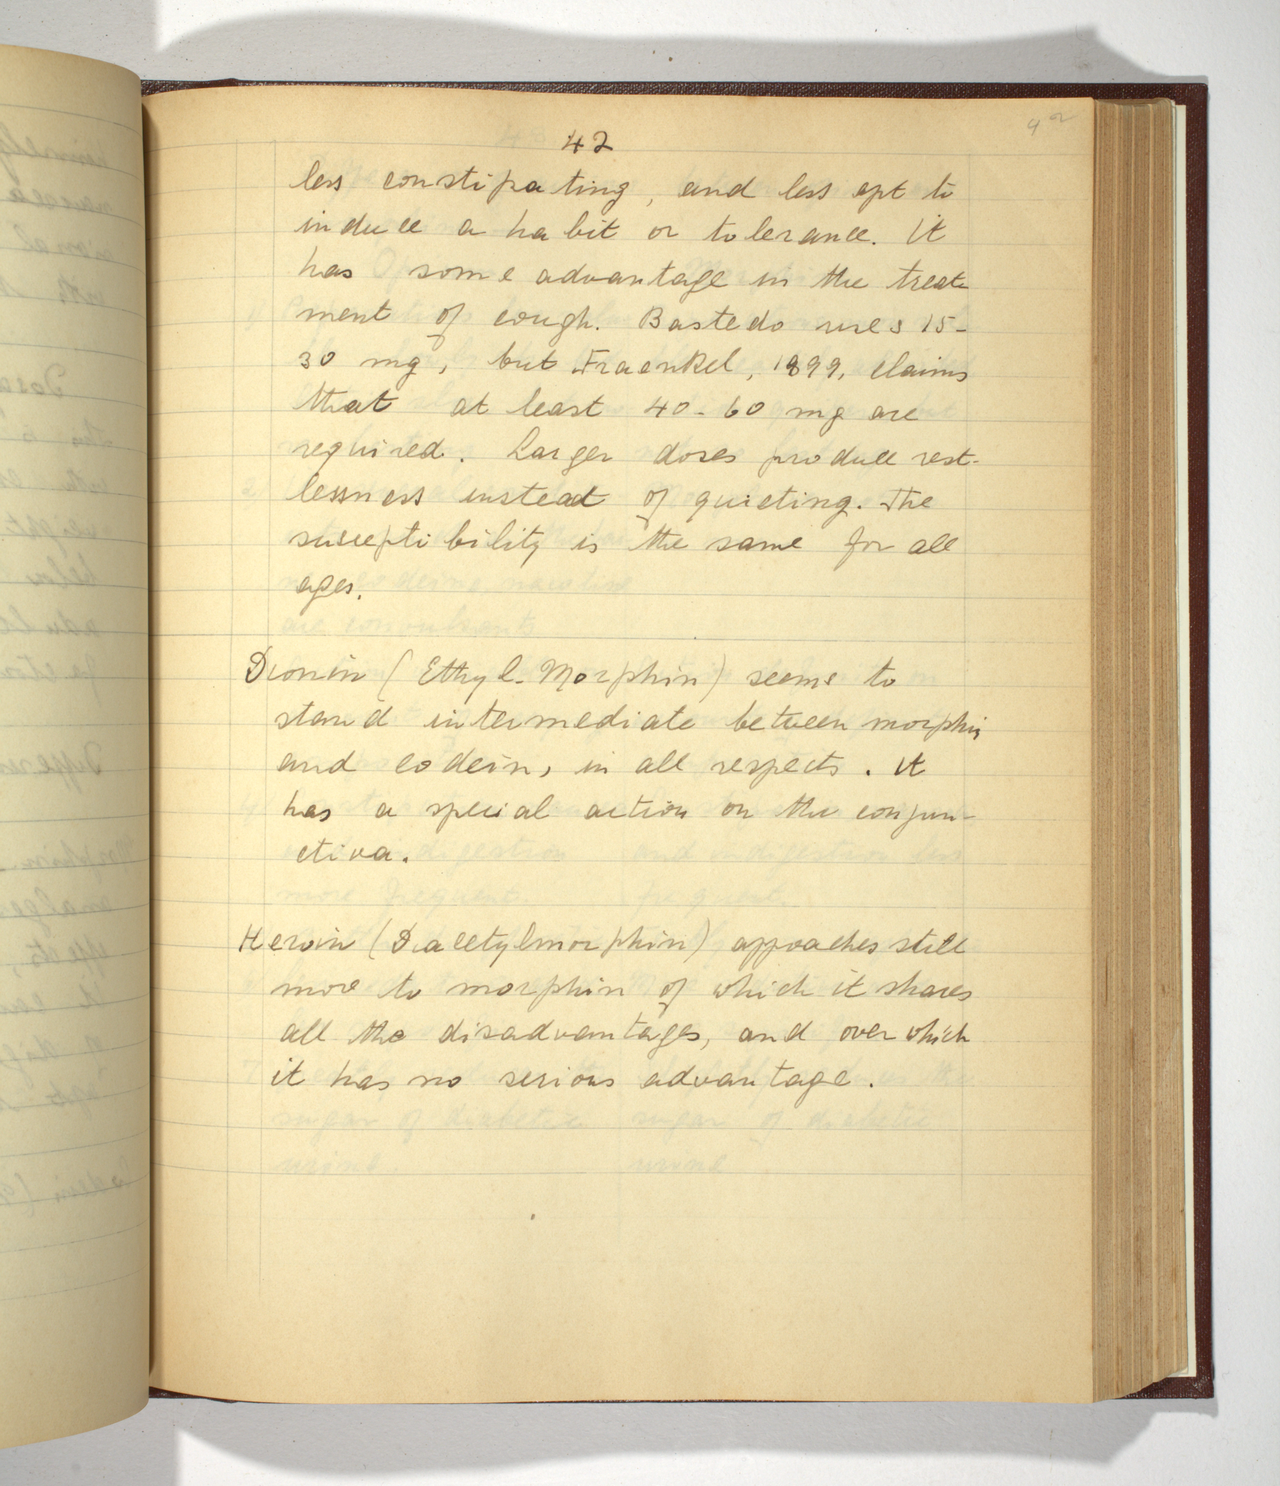 42
42
less constipating, and less apt to
induce a habit or tolerance. It
has some advantage in the treat-
ment of cough. Bastedo uses 15-
30 mg, but Fraenkel, 1899, claims
that at least 40-60 mg are
required. Larger doses produce rest-
lessness instead of quieting. The
susceptibility is the same for all
ages.
Dionin (Ethyl-Morphin) seems to
stand intermediate between morphin
and codein, in all respects. It
has a special action on the conjun-
ctiva.
Heroin (Diacetylmorphin) approaches still
more to morphin of which it shares
all the disadvantages, and over which
it has no serious advantage.